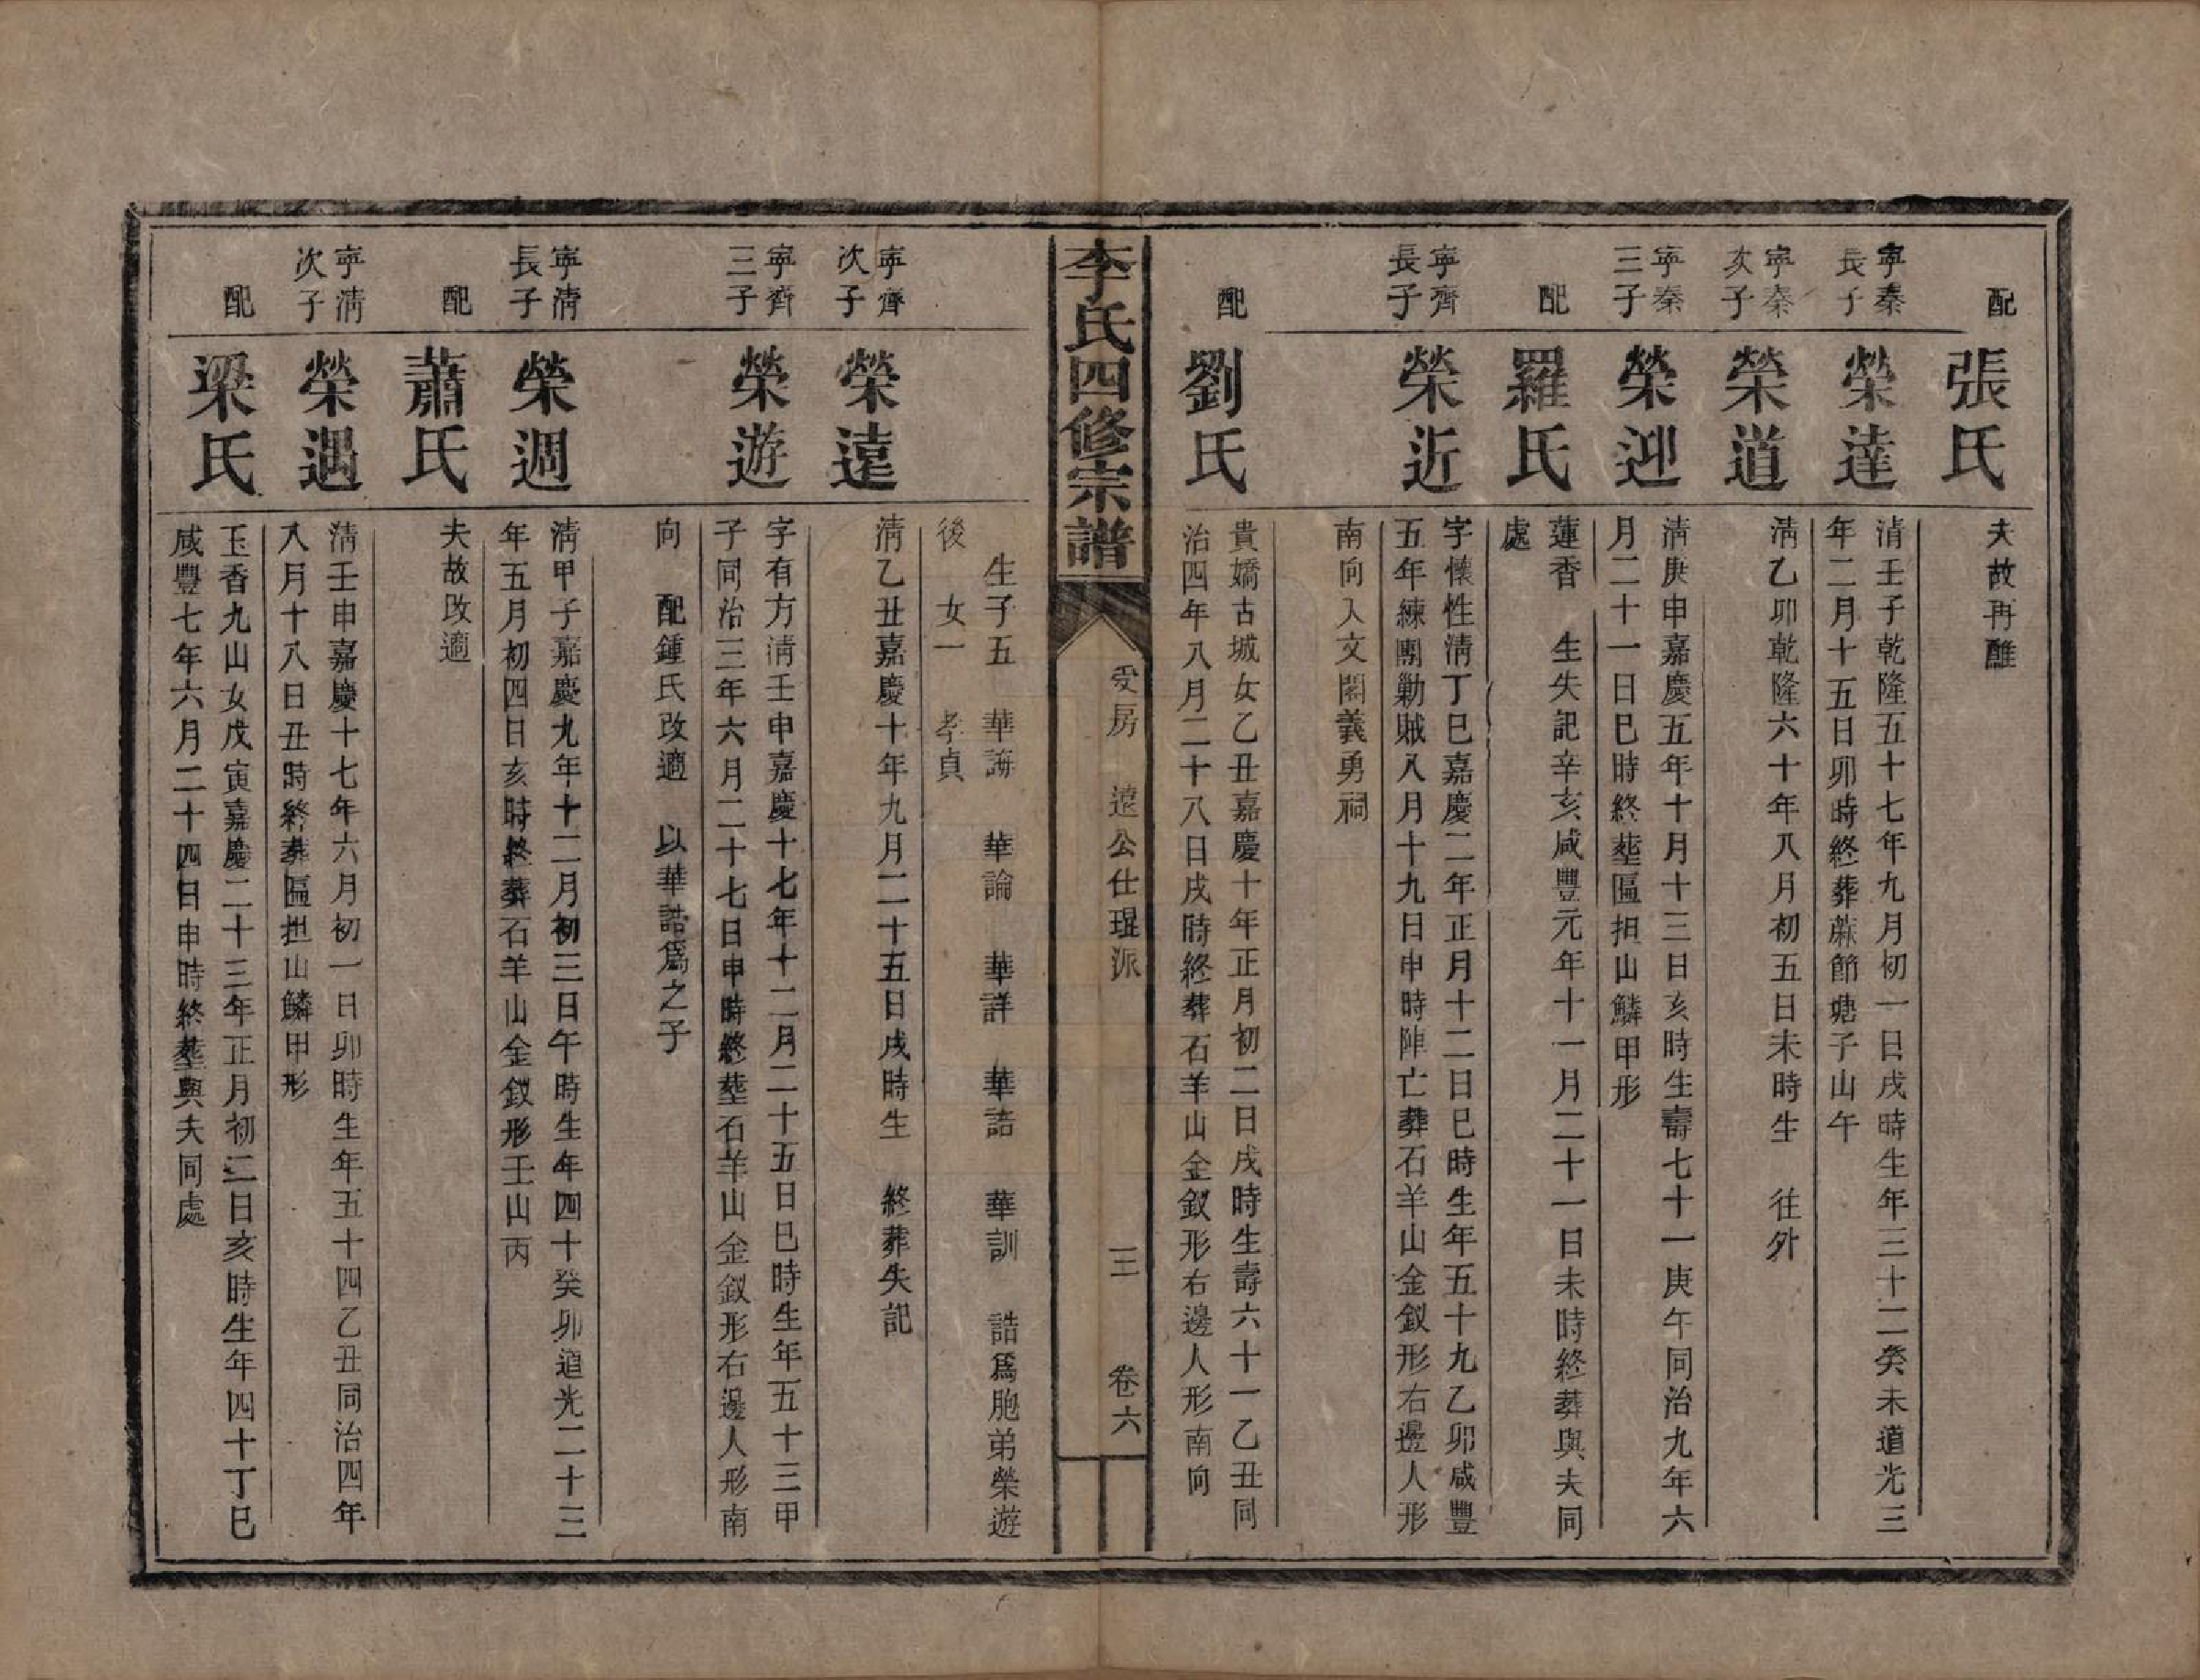 配
張氏
夫故再醮
寕秦
長子
榮達
清壬子乾隆五十七年九月初一日戌時生年三十二癸未道光三
年二月十五日卯時終葬蔴節塘子山午
寕秦
次子
榮道
清乙卯乾隆六十年八月初五日未時生　往外
寕秦
三子
榮迎
清庚申嘉慶五年十月十三日亥時生壽七十一庚午同治九年六
月二十一日巳時終塟匾担山鱗甲形
配
羅氏
蓮香　生失記辛亥咸豐元年十一月二十一日未時終葬與夫同
處
寕齊
長子
榮近
字懷性清丁巳嘉慶二年正月十二日巳時生年五十九乙卯咸豐
五年練團勦賊八月十九日申時陣亡葬石羊山金釵形右邊人形
南向入文閣義勇祠
配
劉氏
貴嬌古城女乙丑嘉慶十年正月初二日戌時生壽六十一乙丑同
治四年八月二十八日戌時終葬石羊山金釵形右邊人形南向
李氏四修宗譜
受房　遠公仕琨派　三　卷六
生子五　華誨　華論　華詳　華誥　華訓　誥爲胞弟榮遊
後　女一　孝貞
寕齊
次子
榮遠
清乙丑嘉慶十年九月二十五日戌時生　終葬失記
寕齊
三子
榮遊
字有方清壬申嘉慶十七年十二月二十五日巳時生年五十三甲
子同治三年六月二十七日申時終塟石羊山金釵形右邊人形南
向　配鍾氏改適　以華誥爲之子
寕清
長子
榮週
清甲子嘉慶九年十二月初三日午時生年四十癸卯道光二十三
年五月初四日亥時終葬石羊山金釵形壬山丙
配
蕭氏
夫故改適
寕清
次子
榮遇
清壬申嘉慶十七年六月初一日卯時生年五十四乙丑同治四年
八月十八日丑時終葬匾担山鱗甲形
配
梁氏
玉香九山女戊寅嘉慶二十三年正月初二日亥時生年四十丁巳
咸豐七年六月二十四日申時終塟與夫同處